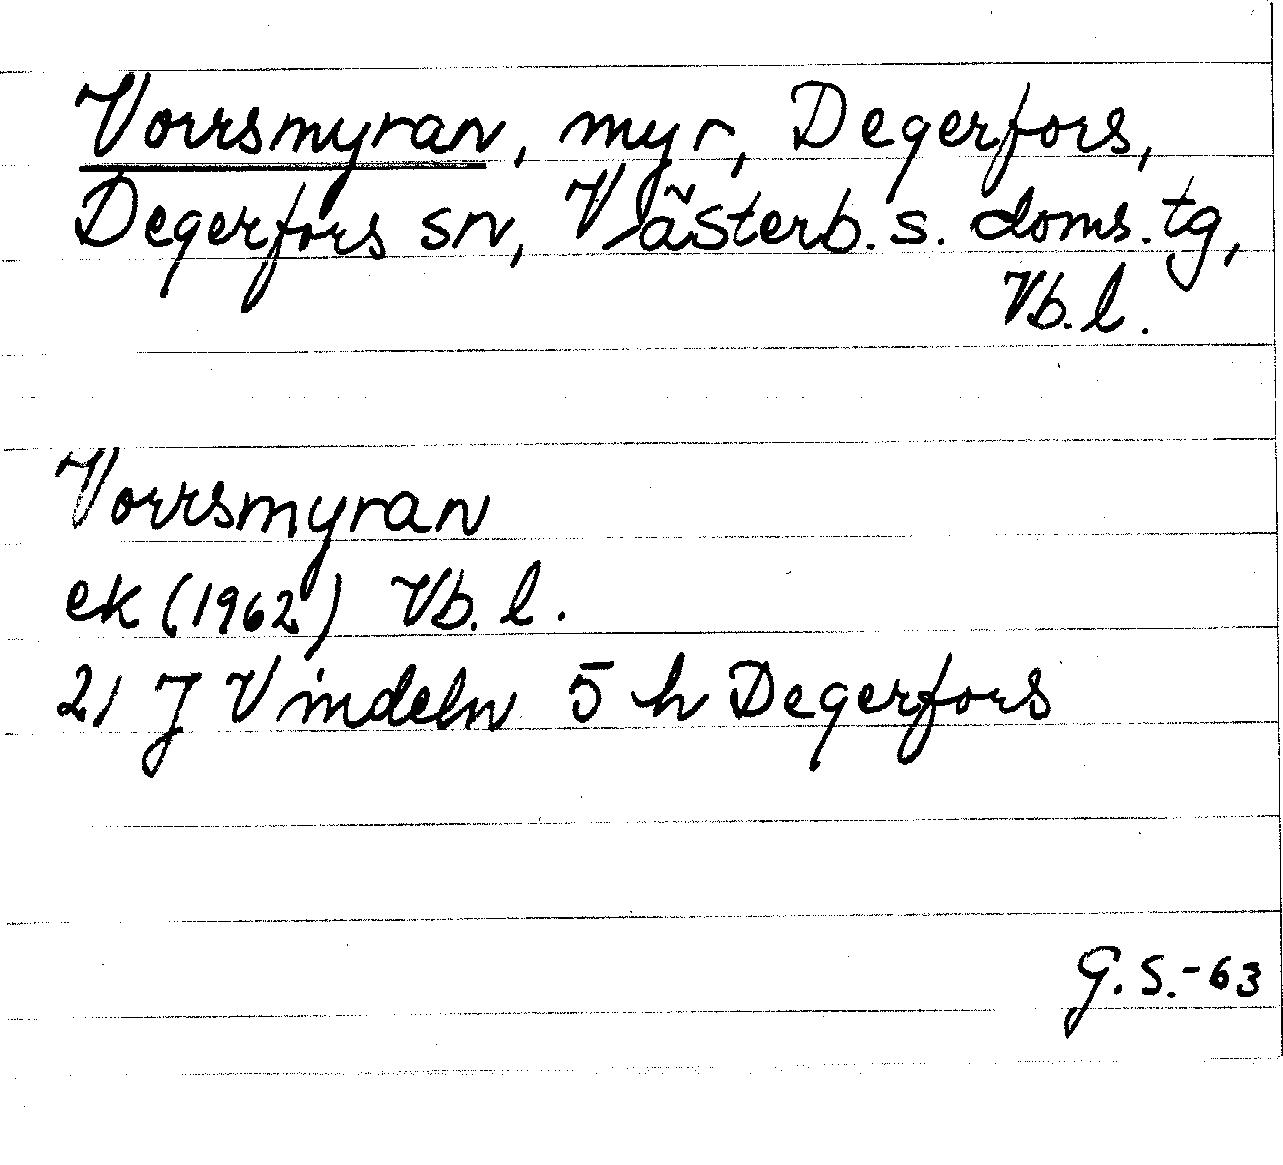 Vorrsmyran, myr, Degerfors,
Degerfors sn, Västerb. s. doms. tg,
Vb. l.
Vorrsmyran
ek (1962) Vb. l.
21 J Vindeln 5 h Degerfors
G. S. - 63